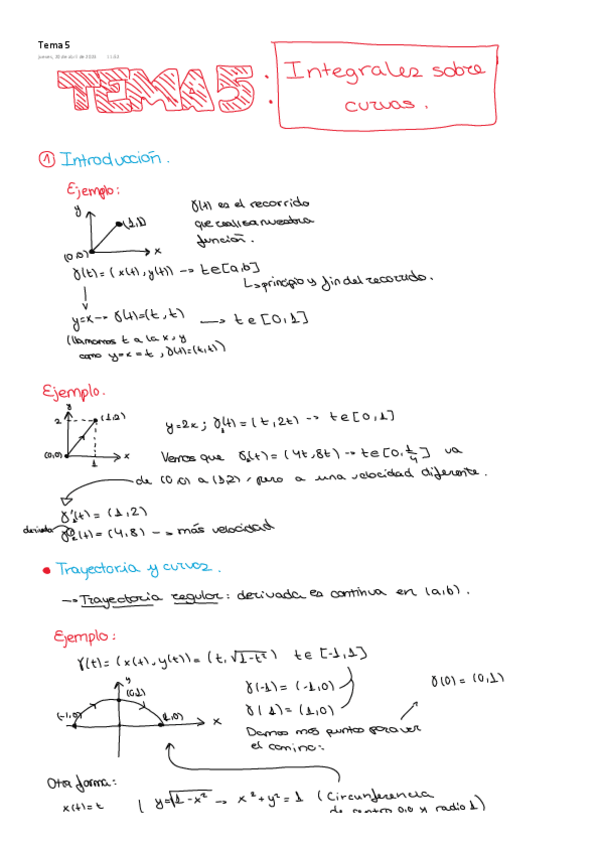 Tema 5
jueves, 20 de abril de 2023 11:52
TEMA 5 :
Integrales sobre
curvas.
① Introducción.
Ejemplo:
y
(1,1)
(0,0)
x
γ(t) es el recorrido
que realiza nuestra
función.
γ(t) = (x(t), y(t)) -> t ∈ [a,b]
↳ principio y fin del recorrido.
y=x -> γ(t)=(t,t) -> t ∈ [0,1]
(llamamos t a la x, y
como y=x=t, γ(t)=(t,t))
Ejemplo.
y
2
(1,2)
(0,0)
1
x
y=2x; γ₁(t) = (t, 2t) -> t ∈ [0,1]
Vemos que γ₂(t) = (4t, 8t) -> t ∈ [0, ¼] va
de (0,0) a (1,2), pero a una velocidad diferente.
γ₁'(t) = (1,2)
derivada
γ₂'(t) = (4,8) -> más velocidad
• Trayectoria y curvas.
-> Trayectoria regular: derivada es continua en (a,b).
Ejemplo:
γ(t) = (x(t), y(t)) = (t, √1-t²) t ∈ [-1,1]
y
(0,1)
(-1,0)
(1,0)
x
γ(-1) = (-1,0)
γ(1) = (1,0)
γ(0) = (0,1)
Damos más puntos para ver
el camino:
Otra forma:
x(t) = t
y=√1-x² -> x²+y²=1 (Circunferencia
de centro 0,0 y radio 1)